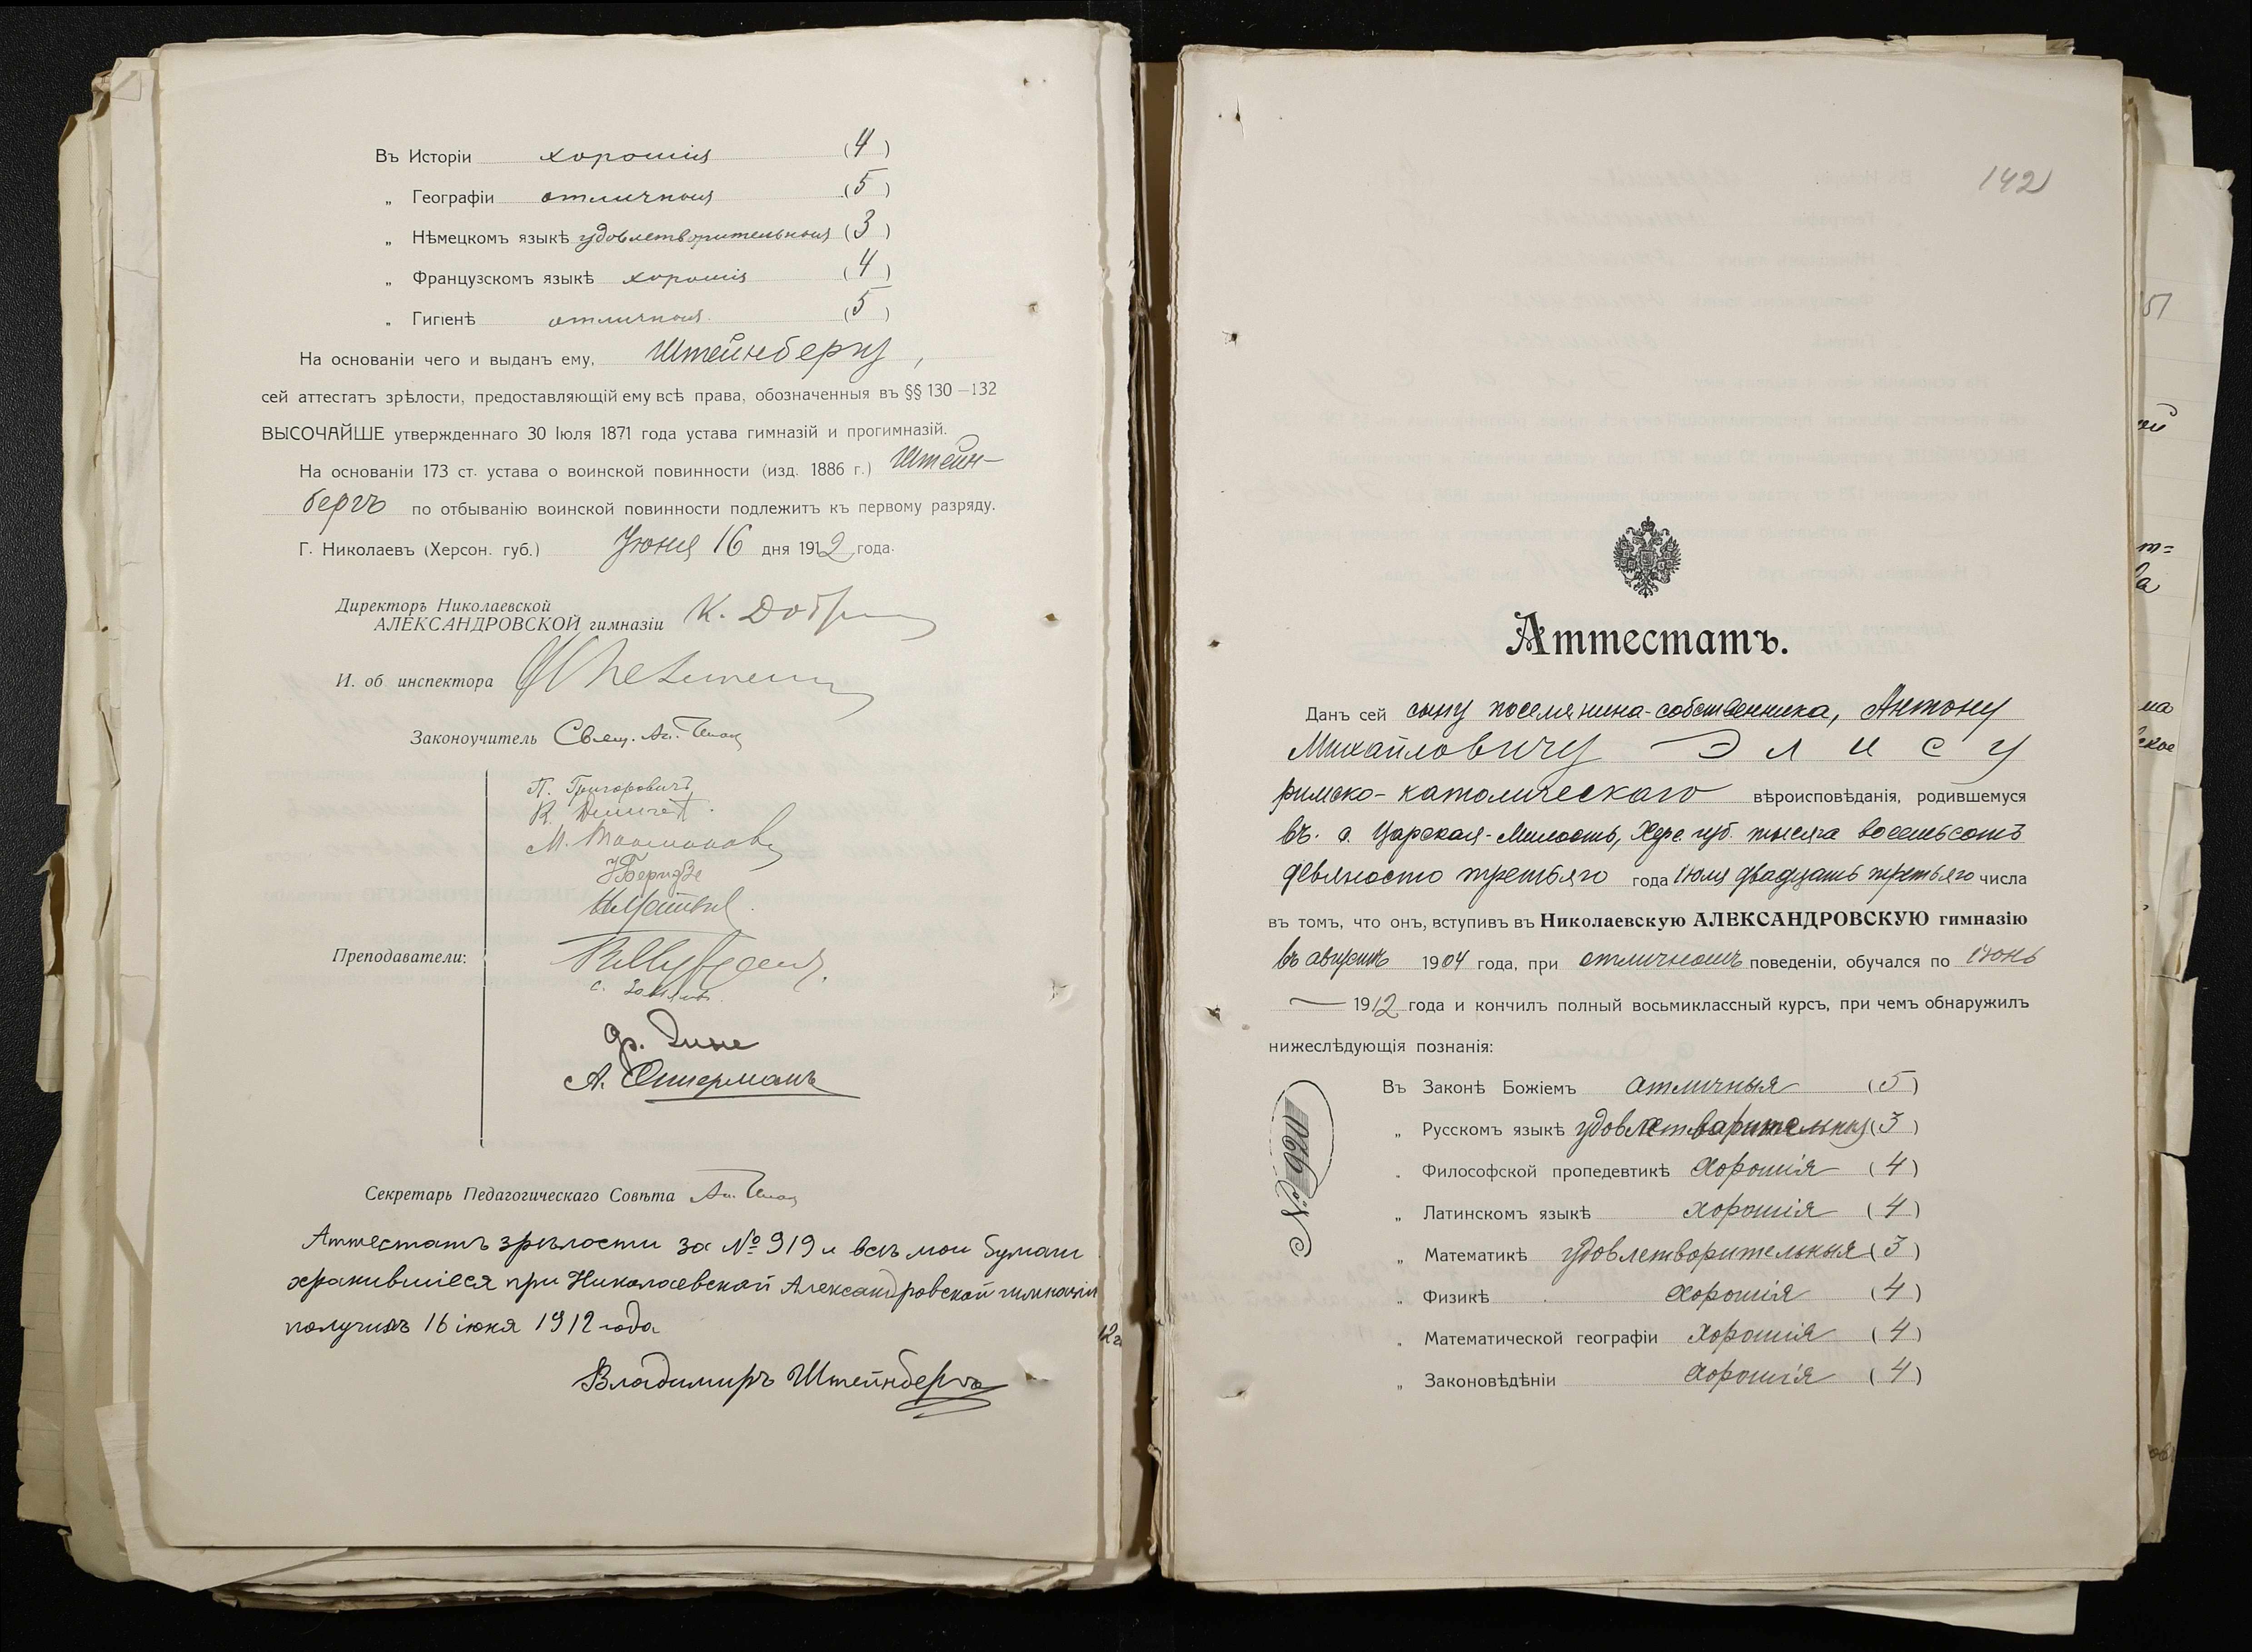 Въ Исторіи хорошія (4)
„ Географіи отличныя (5)
„ Нѣмецкомъ языкѣ удовлетворительныя (3)
„ Французскомъ языкѣ хорошія (4)
„ Гигіенѣ отличныя (5)
На основаніи чего и выданъ ему, Штейнбергу,
сей аттестатъ зрѣлости, предоставляющій ему всѣ права, обозначенныя въ §§ 130—132
ВЫСОЧАЙШЕ утвержденнаго 30 Іюля 1871 года устава гимназій и прогимназій.
На основаніи 173 ст. устава о воинской повинности (изд. 1886 г.) Штейн-
бергъ по отбыванію воинской повинности подлежитъ къ первому разряду.
Г. Николаевъ (Херсон. губ.) Іюня 16 дня 1912 года.
Директоръ Николаевской
АЛЕКСАНДРОВСКОЙ гимназіи К.
И. об. инспектора
Законоучитель Свящ. Ал.
П. Григоровичъ
К.
М.
Преподаватели:
С.
Ф.
А.
Секретарь Педагогическаго Совѣта Ал.
Аттестатъ зрѣлости за № 919 и всѣ мои бумаги
хранившіеся при Николаевской Александровской гимназіи
получилъ 16 іюня 1912 года
Владимиръ Штейнбергъ
142
Аттестатъ.
Данъ сей сыну поселянина-собственника, Антону
Михайловичу Элису
римско-католическаго вѣроисповѣданія, родившемуся
въ с. Царская-Милость, Херс. губ. тысяча восемьсотъ
девяносто третьяго года Іюля двадцать третьяго числа
въ томъ, что онъ, вступивъ въ Николаевскую АЛЕКСАНДРОВСКУЮ гимназію
въ августѣ 1904 года, при отличномъ поведеніи, обучался по іюнь
— 1912 года и кончилъ полный восьмиклассный курсъ, при чемъ обнаружилъ
нижеслѣдующія познанія:
№ 920
Въ Законѣ Божіемъ отличныя (5)
„ Русскомъ языкѣ удовлетворительныя (3)
„ Философской пропедевтикѣ хорошія (4)
„ Латинскомъ языкѣ хорошія (4)
„ Математикѣ удовлетворительныя (3)
„ Физикѣ хорошія (4)
„ Математической географіи хорошія (4)
„ Законовѣдѣніи хорошія (4)